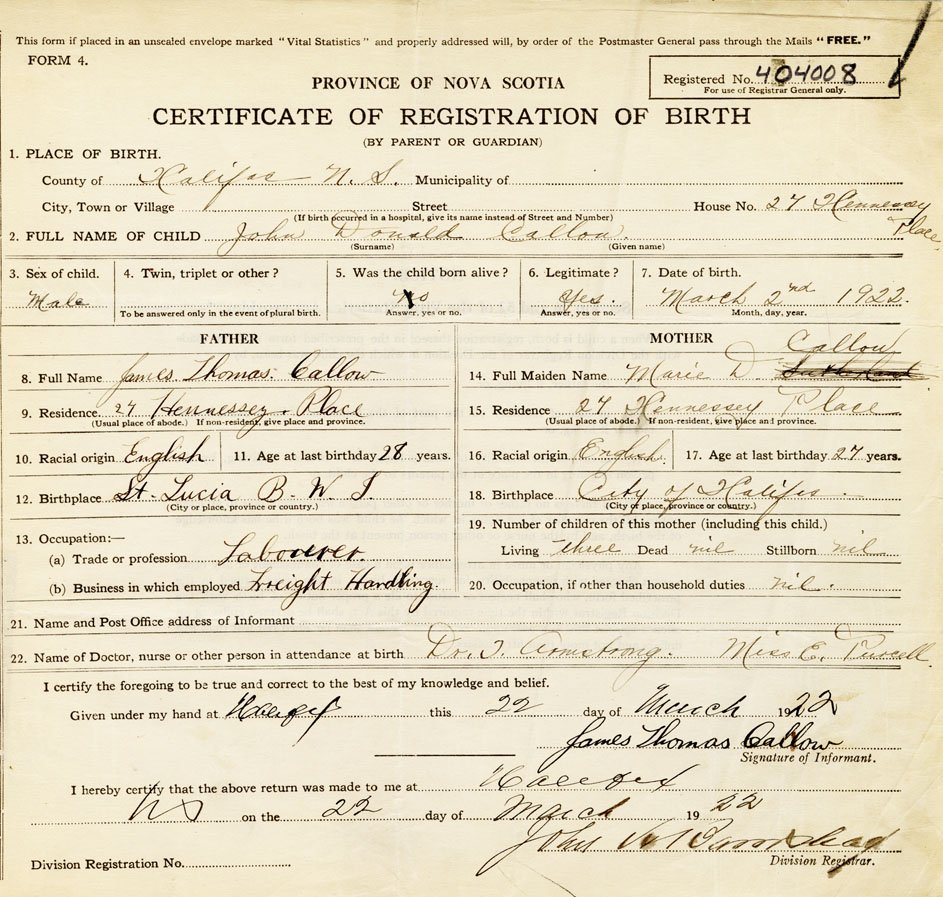 This form if placed in an unsealed envelope marked "Vital Statistics" and properly addressed will, by order of the Postmaster General pass through the Mails "FREE."
FORM 4.
Registered No. 404008
For use of Registrar General only.
PROVINCE OF NOVA SCOTIA
CERTIFICATE OF REGISTRATION OF BIRTH
(BY PARENT OR GUARDIAN)
1. PLACE OF BIRTH.
County of Halifax N. S. Municipality of
City, Town or Village Street House No. 27 Hennessey Place
(If birth occurred in a hospital, give its name instead of Street and Number)
2. FULL NAME OF CHILD John Donald Callow
(Surname) (Given name)
3. Sex of child. 4. Twin, triplet or other? 5. Was the child born alive? 6. Legitimate? 7. Date of birth.
Male Yes. March 2nd 1922.
To be answered only in the event of plural birth. Answer, yes or no. Answer, yes or no. Month, day, year.
FATHER MOTHER
Callow
8. Full Name James Thomas Callow 14. Full Maiden Name Marie D.
9. Residence. 27 Hennessey Place 15. Residence 27 Hennessey Place
(Usual place of abode.) If non-resident, give place and province. (Usual place of abode.) If non-resident, give place and province.
10. Racial origin English 11. Age at last birthday 28 years. 16. Racial origin English 17. Age at last birthday 27 years.
12. Birthplace St. Lucia B. W. I. 18. Birthplace City of Halifax.
(City or place, province or country.) (City or place, province or country.)
13. Occupation:— 19. Number of children of this mother (including this child.)
(a) Trade or profession Labourer Living three Dead nil Stillborn nil
(b) Business in which employed Freight Handling. 20. Occupation, if other than household duties nil.
21. Name and Post Office address of Informant
22. Name of Doctor, nurse or other person in attendance at birth Dr. I. Armstrong. Miss E. Purcell.
I certify the foregoing to be true and correct to the best of my knowledge and belief.
Given under my hand at Halifax this 22 day of March 1922
James Thomas Callow
Signature of Informant.
I hereby certify that the above return was made to me at Halifax
NS on the 22 day of March 19 22
John W
Division Registration No. Division Registrar.